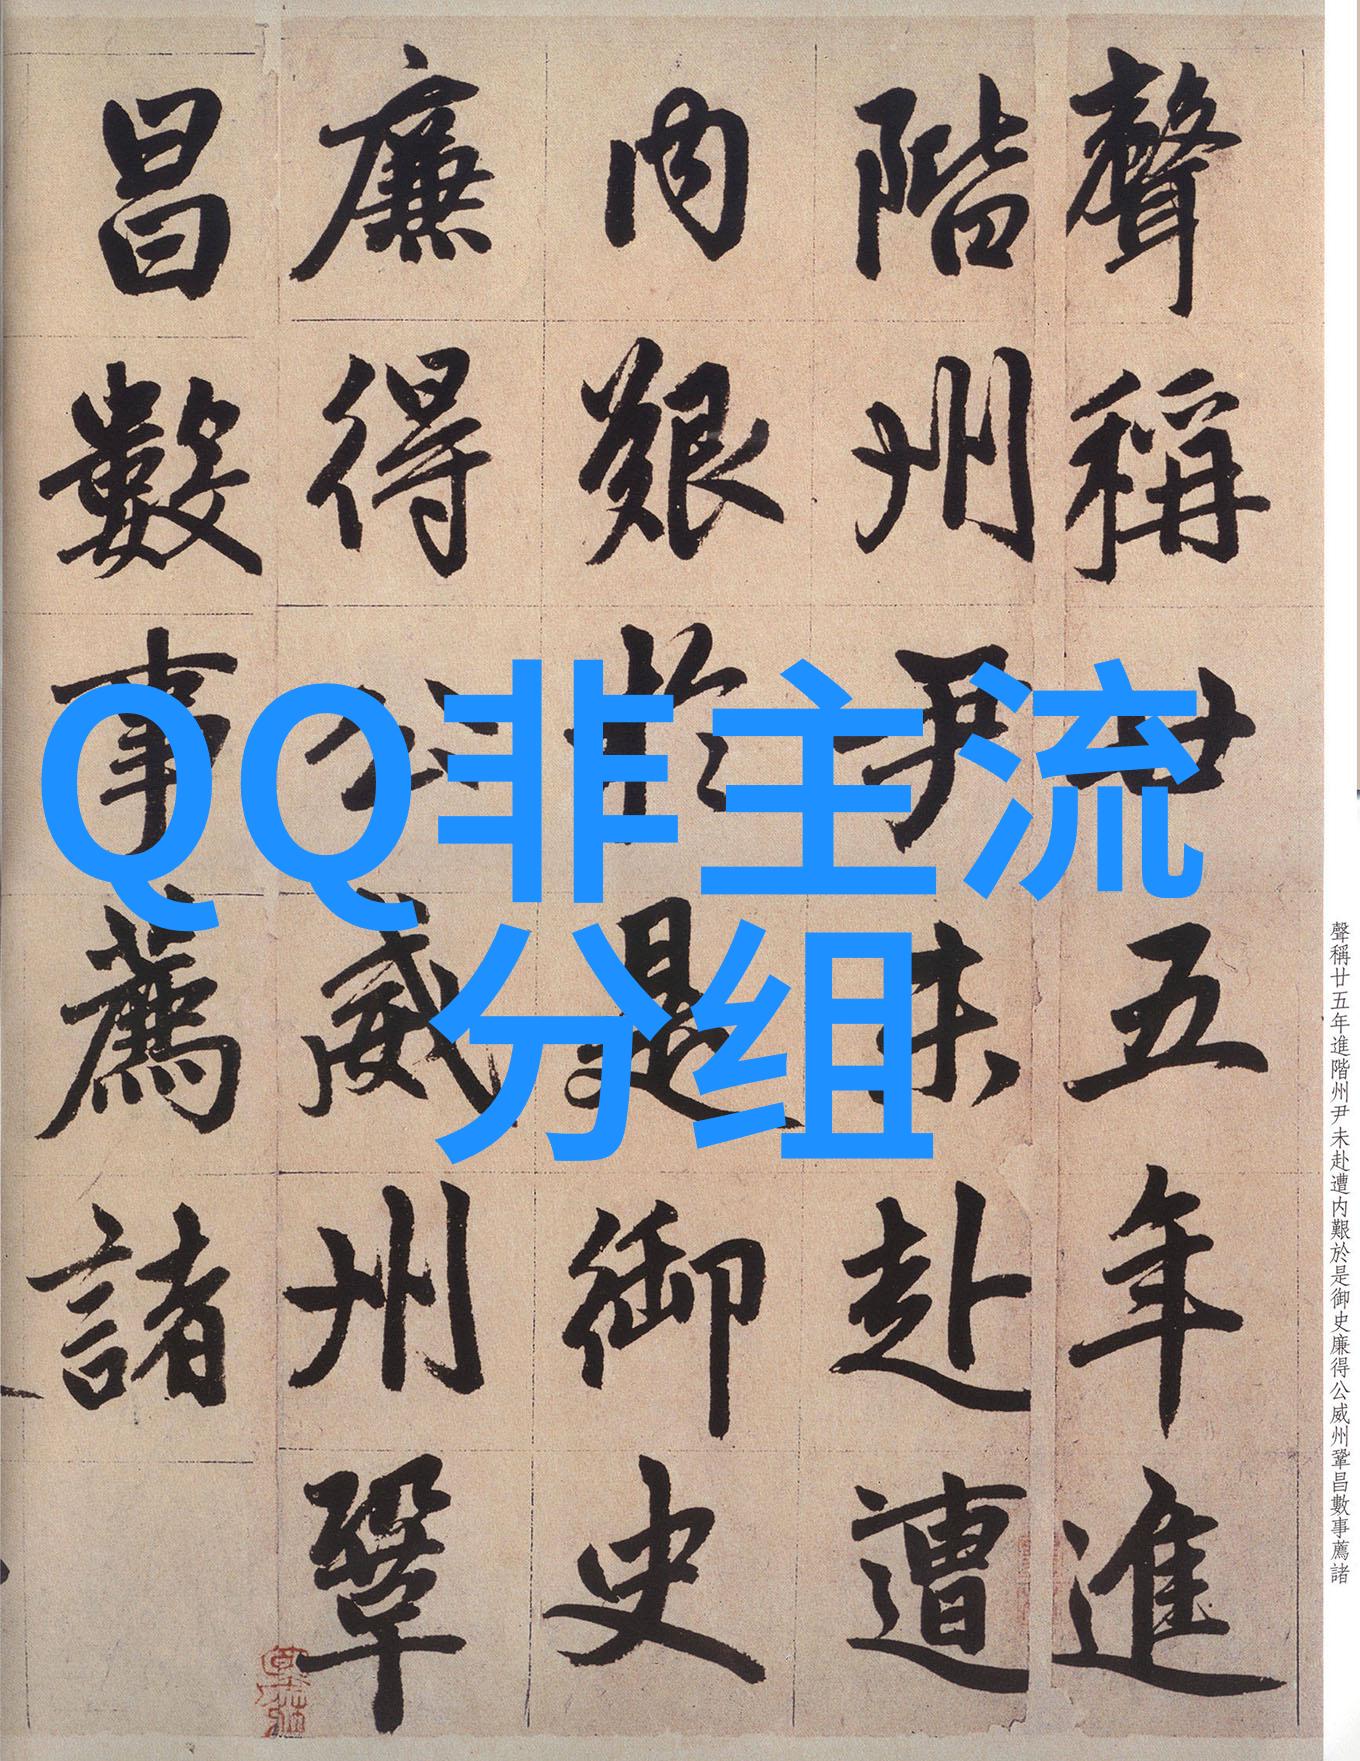 聲稱廿五年進
階州尹未赴遭
内艱於是御史
廉得公威州鞏
昌數事薦諸
QQ非主流
分组
聲稱廿五年進階州尹未赴遭内艱於是御史廉得公威州鞏昌數事薦諸